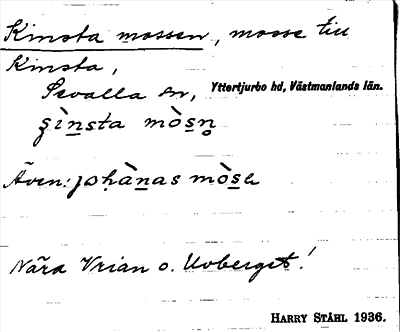 Kinsta mossen, mosse till
Kinsta,
Sevalla sn, Yttertjurbo hd, Västmanlands län.
ʂìn̲sta mòs̲n̥
Även: johàn̲as mòs̲e
Nära Vrian o. Uvberget!
HARRY STÅHL 1936.